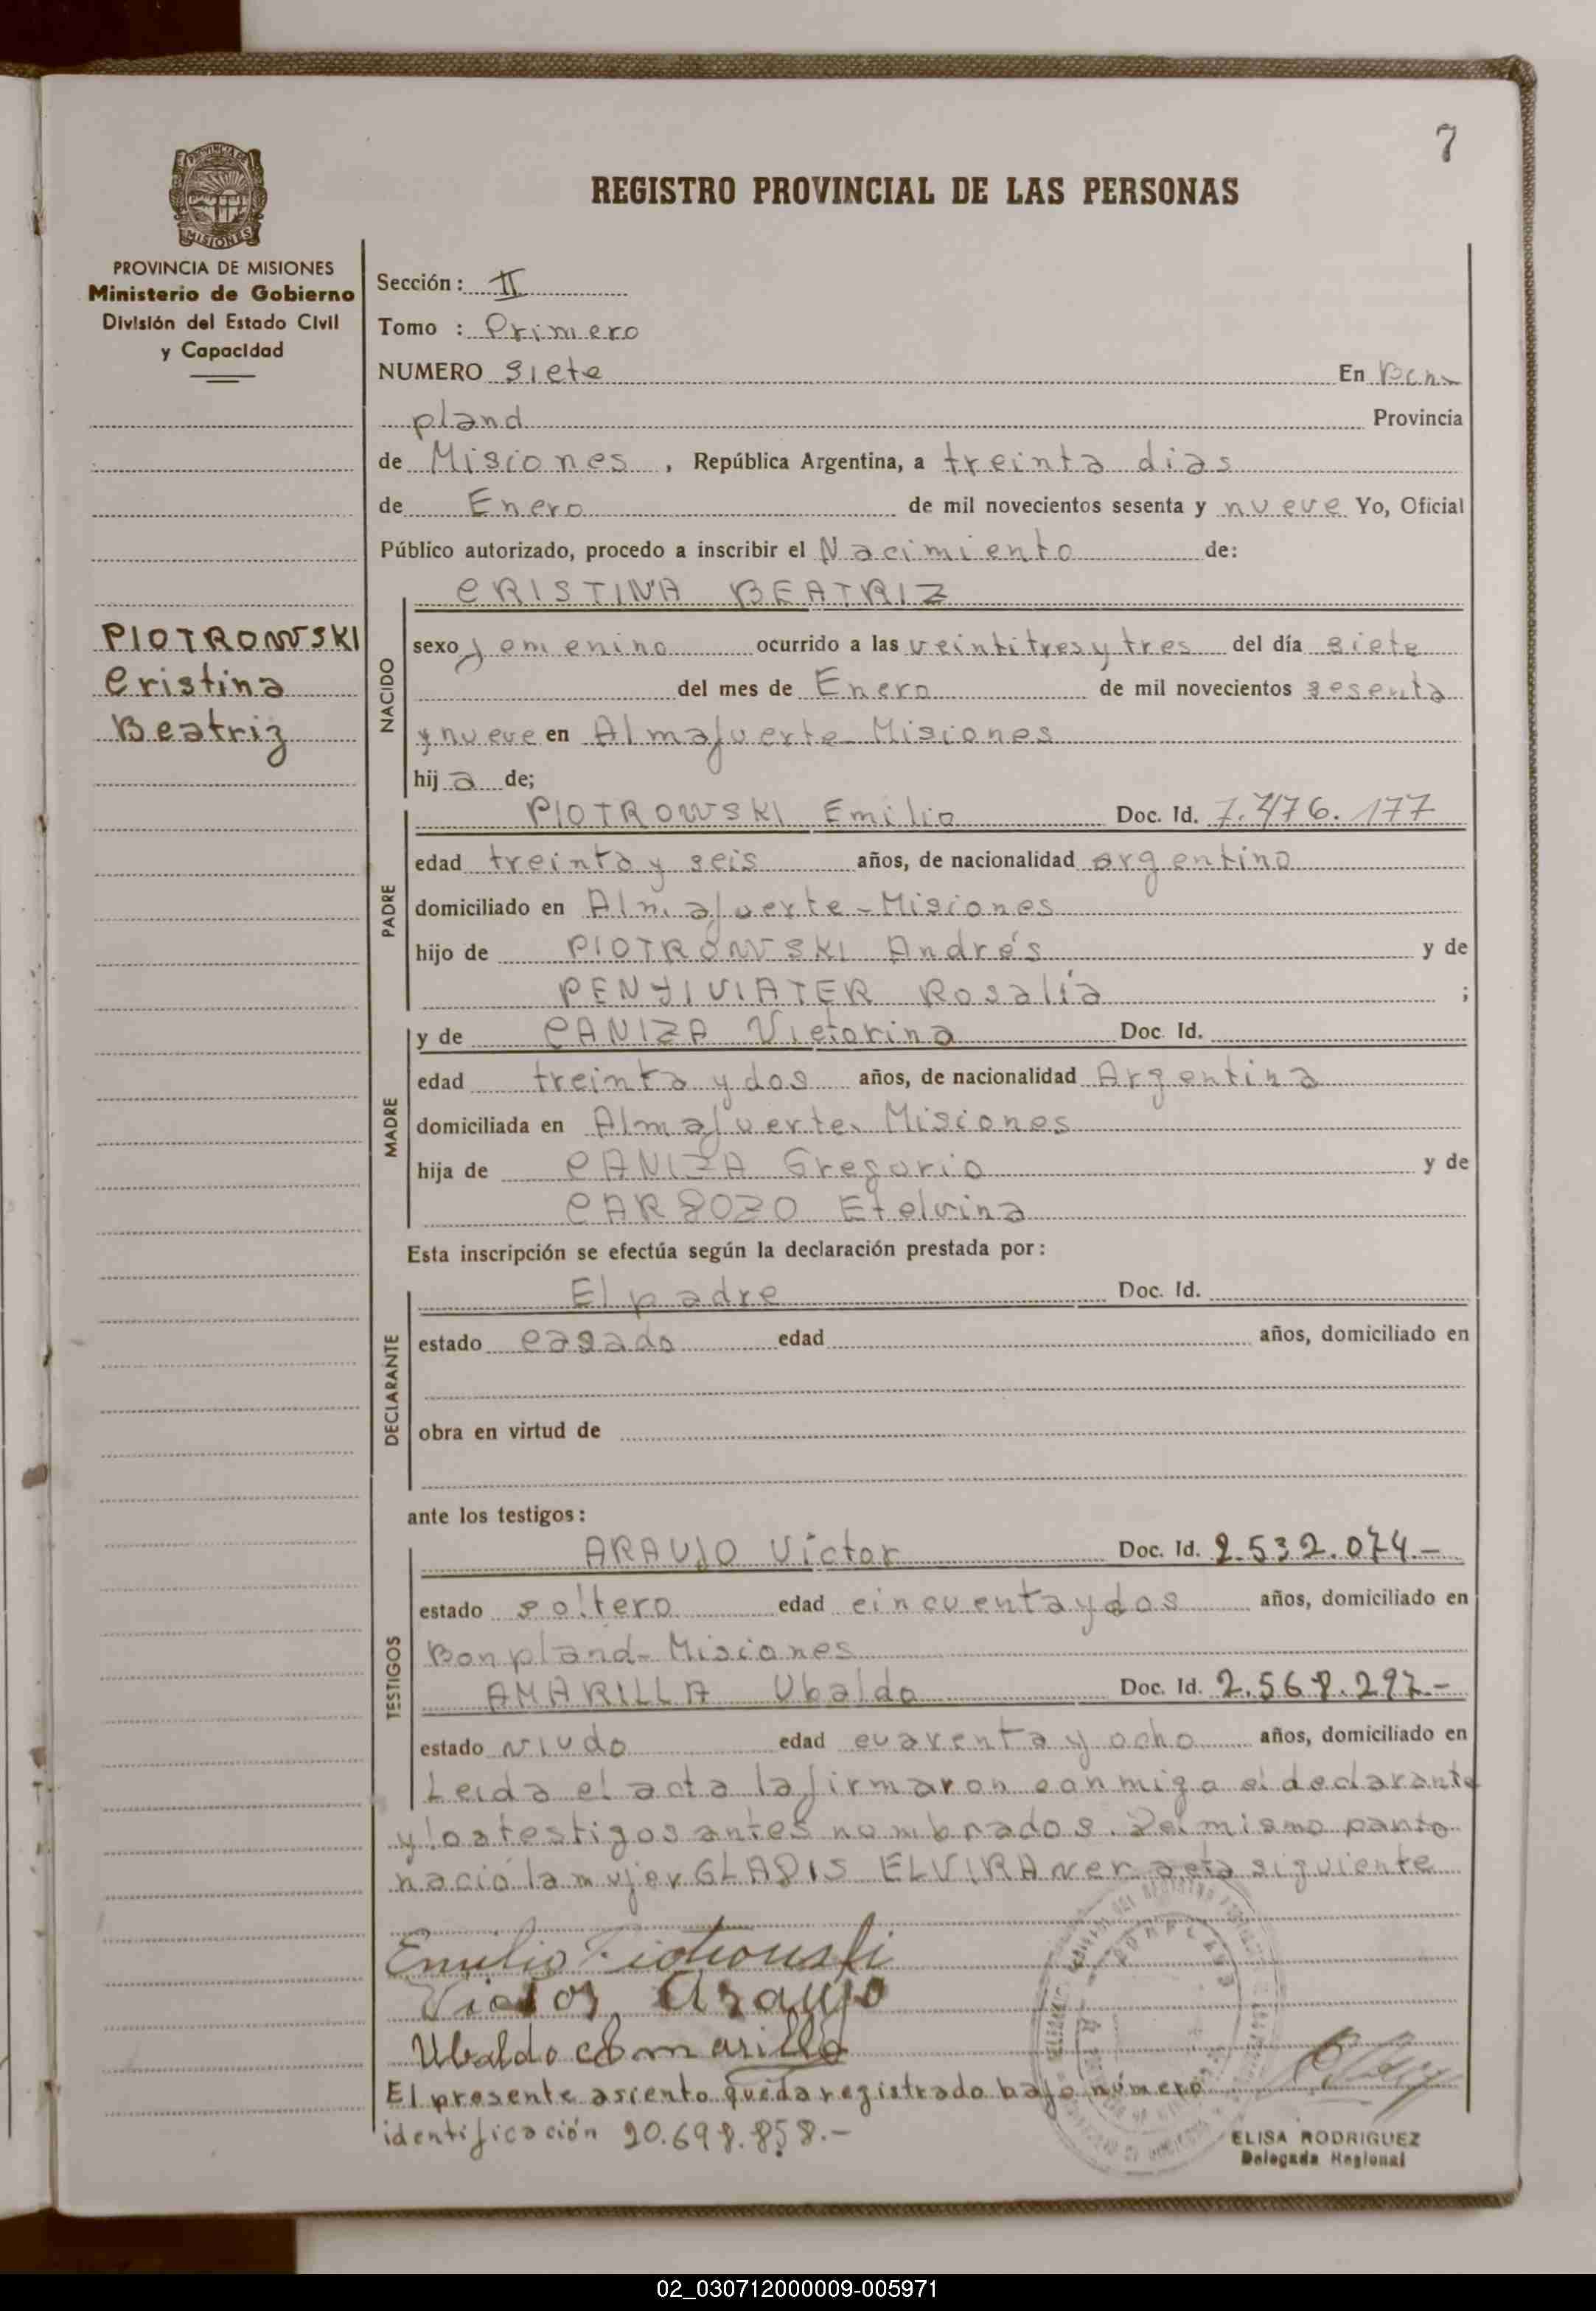 7
REGISTRO PROVINCIAL DE LAS PERSONAS
PROVINCIA DE MISIONES
Ministerio de Gobierno
División del Estado Civil
y Capacidad
Sección: II
Tomo : Primero
NUMERO Siete En Bon
pland Provincia
de Misiones, República Argentina, a treinta dias
de Enero de mil novecientos sesenta y nueve Yo, Oficial
Público autorizado, procedo a inscribir el Nacimiento de:
CRISTINA BEATRIZ
PIOTROWSKI
Cristina
Beatriz
NACIDO
sexo femenino ocurrido a las veintitres y tres del día siete
del mes de Enero de mil novecientos sesenta
y nueve en Almafuerte-Misiones
hija de;
PADRE
PIOTROWSKI Emilio Doc. Id. 7.476.177
edad treinta y seis años, de nacionalidad argentino
domiciliado en Almafuerte-Misiones
hijo de PIOTROWSKI Andrés y de
Rosalía ;
MADRE
y de CANIZA Victorina Doc. Id.
edad treinta y dos años, de nacionalidad Argentina
domiciliada en Almafuerte-Misiones
hija de CANIZA Gregorio y de
CARDOZO Etelvina
Esta inscripción se efectúa según la declaración prestada por:
DECLARANTE
El padre Doc. Id.
estado casado edad años, domiciliado en
obra en virtud de
ante los testigos:
TESTIGOS
ARAUJO Víctor Doc. Id. 2.532.074.-
estado soltero edad cincuenta y dos años, domiciliado en
Bonpland-Misiones
AMARILLA Ubaldo Doc. Id. 2.568.297.-
estado viudo edad cuarenta y ocho años, domiciliado en
Leida el acta la firmaron conmigo el declarante
y los testigos antes nombrados. Del mismo parto
nació la mujer GLADIS ELVIRA ver acta siguiente
Emilio Piotrouski
Victor Araujo
Ubaldo Amarilla
El presente asiento queda registrado bajo número
identificación 20.698.858.-
ELISA RODRIGUEZ
Delegada Regional
02_030712000009-005971